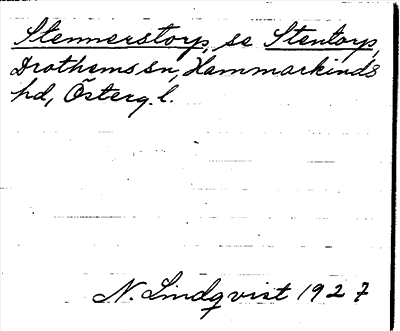 Stennerstorp, se Stentorp,
Drothems sn, Hammarkinds
hd, Österg. l.
N. Lindqvist 1927